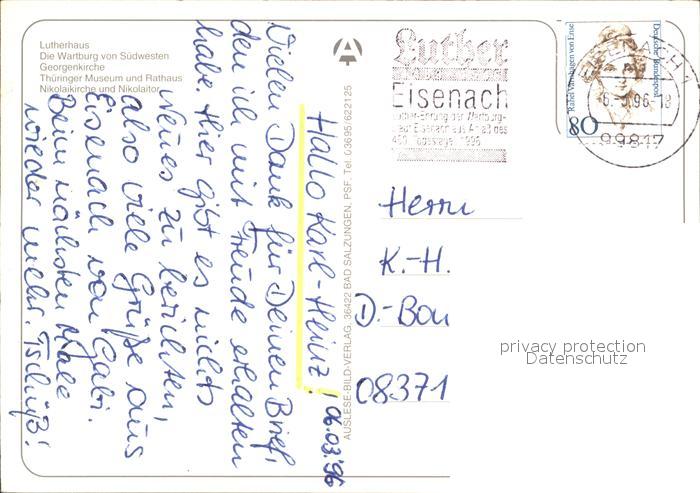 Lutherhaus
Die Wartburg von Südwesten
Georgenkirche
Thüringer Museum und Rathaus
Nikolaikirche und Nikolaitor
Hallo Karl-Heinz! 06.03.96
Vielen Dank für Deinen Brief,
den ich mit Freude erhalten
habe. Hier gibt es nichts
Neues zu berichten,
also viele Grüße aus
Eisenach von Gabi.
Beim nächsten Male
wieder mehr. Tschüß!
AUSLESE-BILD-VERLAG, 36422 BAD SALZUNGEN, PSF, Tel. 03695/622125
Luther
Eisenach
Luther-Ehrung der Wartburg-
450. Todestages 1996
Rahel Varnhagen von Ense
Deutsche Bundespost
80
EISENACH 1
6.-3.96-18
99817
Herrn
K.-H.
D.-Bon
08371
privacy protection
Datenschutz